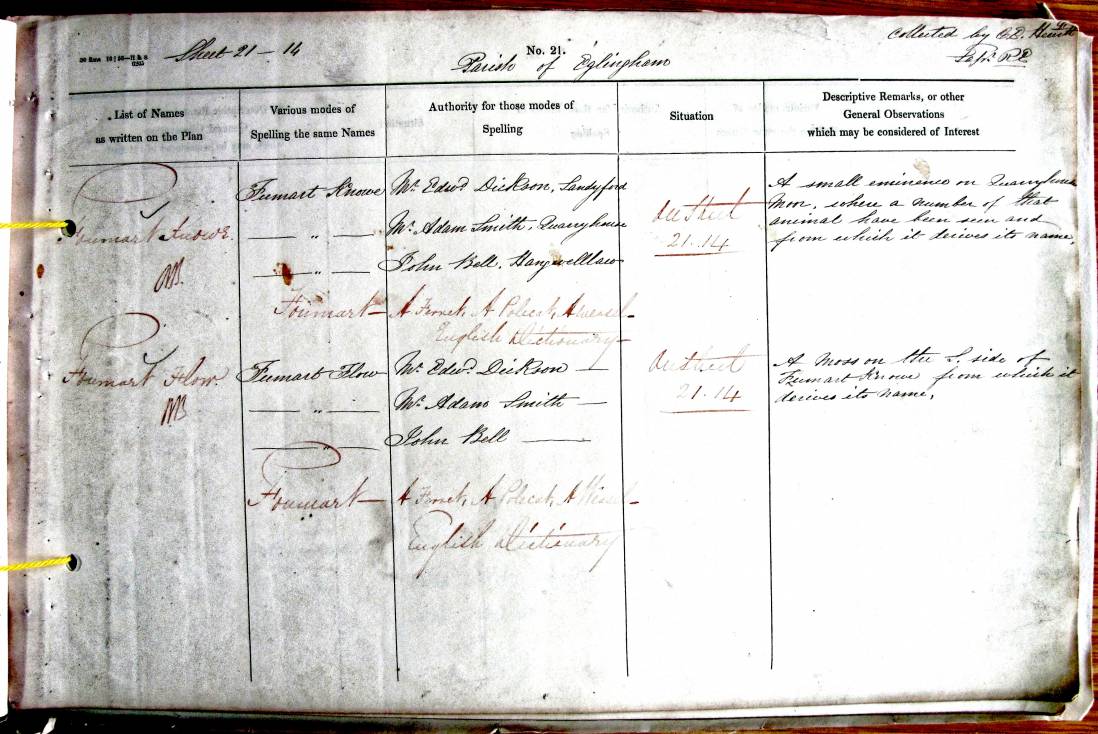 Sheet 21-14
No. 21.
Parish of Eglingham
Collected by C.D.
R.E
List of Names
as written on the Plan
Various modes of
Spelling the same Names
Authority for those modes of
Spelling
Situation
Descriptive Remarks, or other
General Observations
which may be considered of Interest
Foumart Knowe.
Fumart Knowe
Mr. Edwd Dickson, Sandyford
— „ —
Mr. Adam Smith, Quarryhouse
— „ —
John Bell, Hangwelllaw
Foumart —
A Ferret, A Polecat, A Weasel —
English Dictionary —
Sheet
21.14
A small eminence on Quarryhouse
Moor, where a number of that
animal have been seen and
from which it derives its name.
Foumart Flow.
Fumart Flow
Mr. Edwd. Dickson —
— „ —
Mr. Adam Smith —
— „ —
John Bell —
Foumart —
A Ferret, A Polecat, A Weasel —
English Dictionary
Sheet
21.14
A Moss on the S. side of
Fumart Knowe from which it
derives its name.